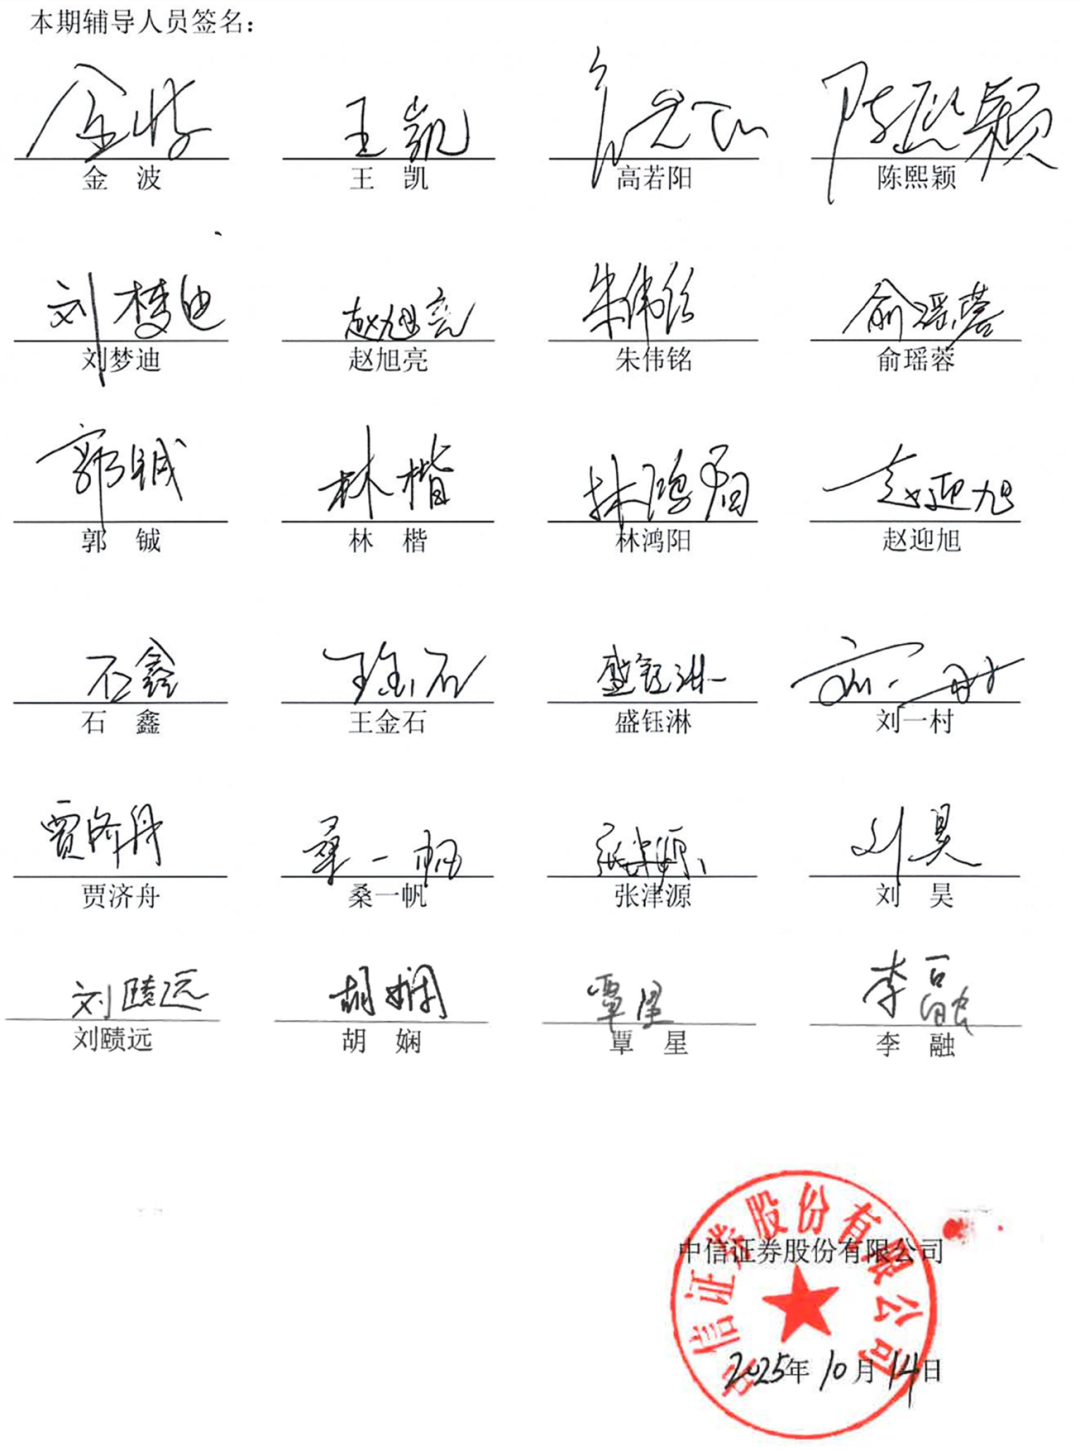 本期辅导人员签名：
金波 王凯 高若阳 陈熙颖
金　波 王　凯 高若阳 陈熙颖
刘梦迪 赵旭亮 朱伟铭 俞瑶蓉
刘梦迪 赵旭亮 朱伟铭 俞瑶蓉
郭铖 林楷 林鸿阳 赵迎旭
郭　铖 林　楷 林鸿阳 赵迎旭
石鑫 王金石 盛钰淋 刘一村
石　鑫 王金石 盛钰淋 刘一村
贾济舟 桑一帆 张津源 刘昊
贾济舟 桑一帆 张津源 刘　昊
刘赜远 胡娴 覃星 李融
刘赜远 胡　娴 覃　星 李　融
中信证券股份有限公司
中信证券股份有限公司
2025年10月14日